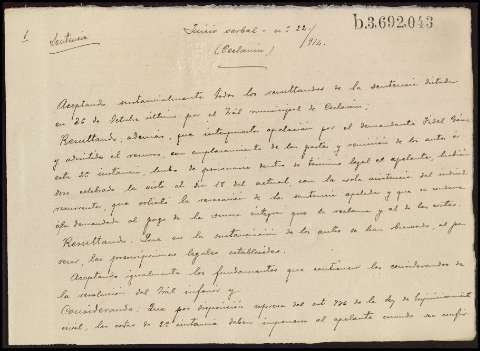 1
Sentencia
Juicio verbal - nº 22/
/914.
(Ceclavin)
b.3.692.043
Aceptando sustancialmente todos los resultandos de la sentencia dictada
en 26 de Octubre último por el Tral municipal de Ceclavin;
Resultando, además, que interpuesta apelación por el demandante Fidel
y admitido el recurso, con emplazamiento de las partes y remisión de los autos á
esta 2ª instancia, hubo de personarse dentro de término legal el apelante, habién
dose celebrado la vista el dia 18 del actual, con la sola asistencia del
recurrente, que solicitó la revocación de la sentencia apelada y que se
al demandado al pago de la suma íntegra que se reclama y al de las costas.
Resultando: Que en la sustanciación de los autos se han observado, al pa
recer, las prescripciones legales establecidas.
Aceptando igualmente los fundamentos que contienen los considerandos de
la resolución del Tral inferior y
Considerando: Que por disposición expresa del art 736 de la ley de Enjuiciamiento
civil, las costas de 2ª instancia deben imponerse al apelante cuando se confir